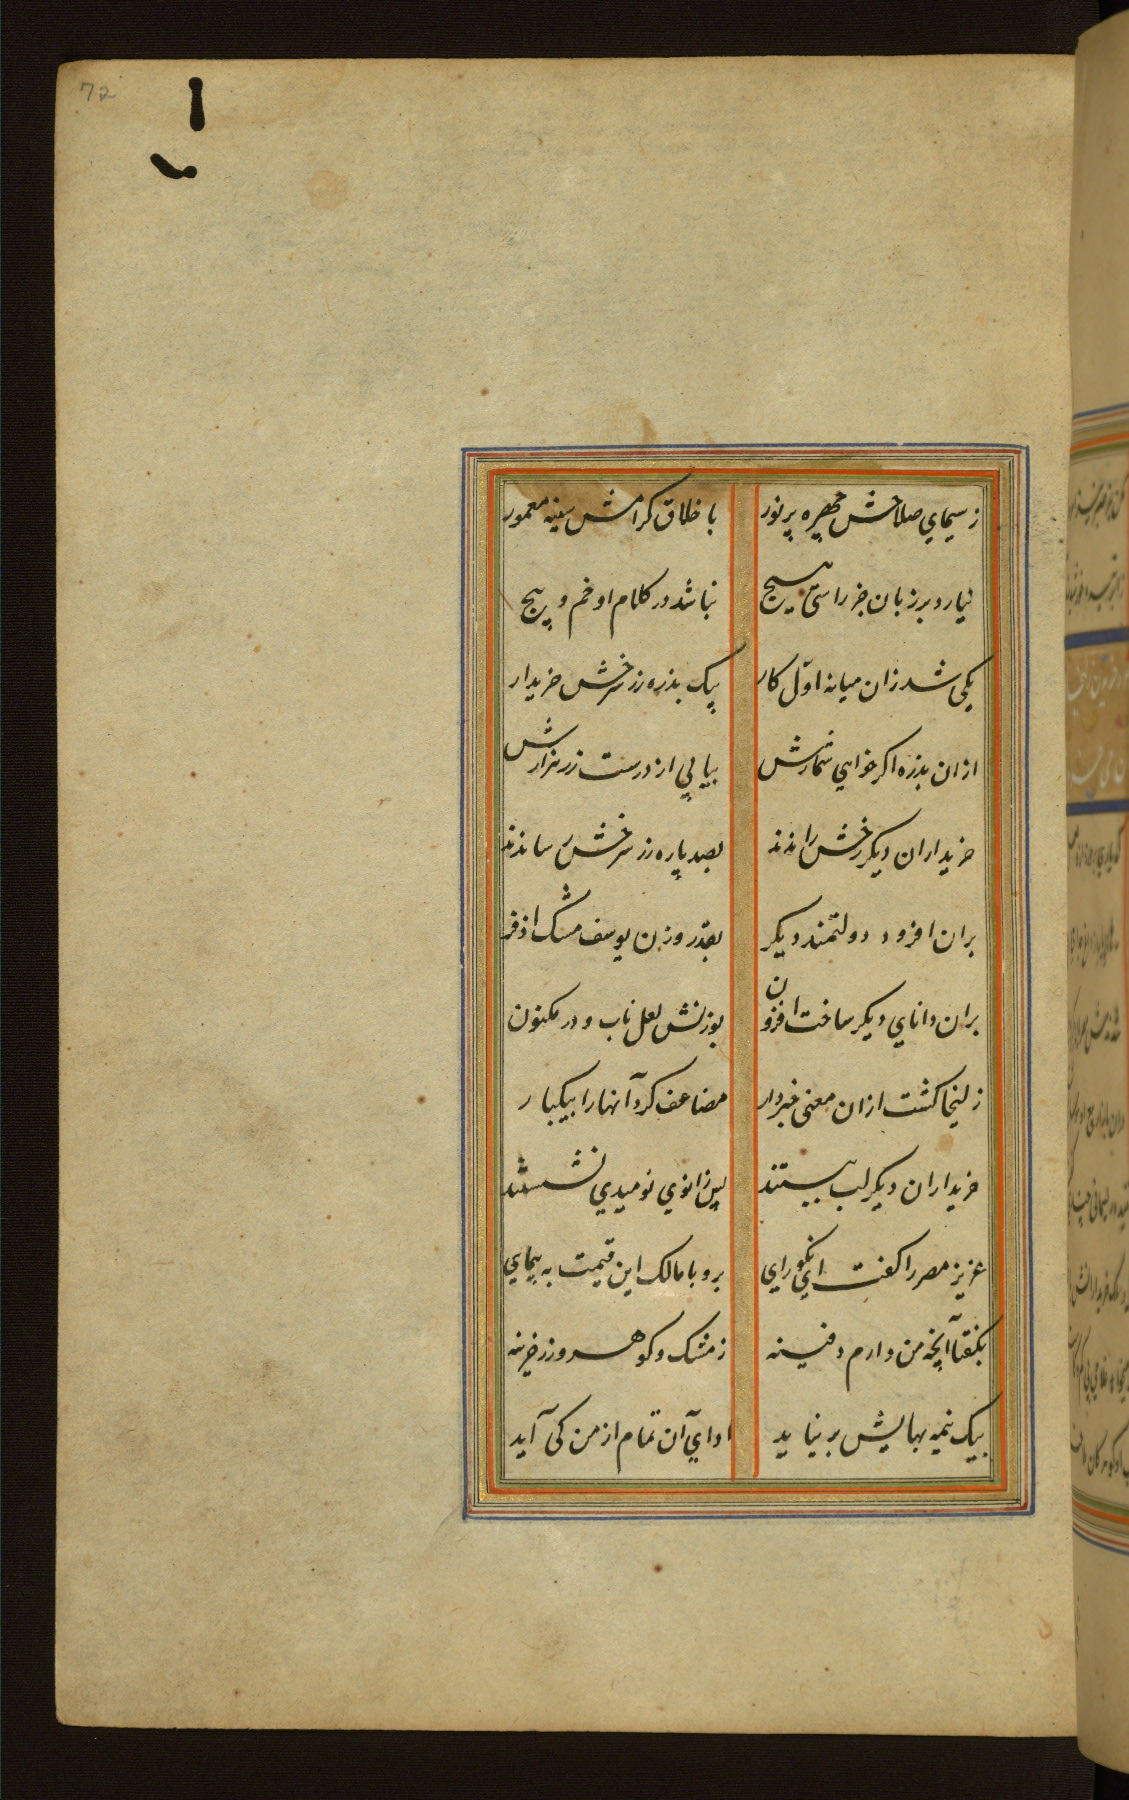 72
ز سیمای صلاحش چهره پر نور	با خلاق کرامش سینه معمور
نیارد بر زبان جز راستی هیچ	نباشد در کلام او خم و پیچ
یکی شد زان میانه اوّل کار	بیک بدره زر سرخش خریدار
ازان بدره اکر خواهی شمارش	بیابی از درست زر هزارش
خریداران دیکر رخش راندند	بصد پاره زر سرخش رساندند
بران افزود دولتمند دیکر	بقدر وزن یوسف مشک اذفر
بران دانای دیکر ساخت افزون	بوزنش لعل ناب و در مکنون
زلیخا کشت ازان معنی خبردار	مضاعف کرد آنها را بیکبار
خریداران دیکر لب ببستند	پس زانوی نومیدی نشستند
عزیز مصر را کفت ای نکورای	برو با مالک این قیمت به پیمای
بکفتا آنچه من دارم دفینه	ز مشک و کوهر و زر خزینه
بیک نیمه بهایش بر نیاید	ادای آن تمام از من کی آید